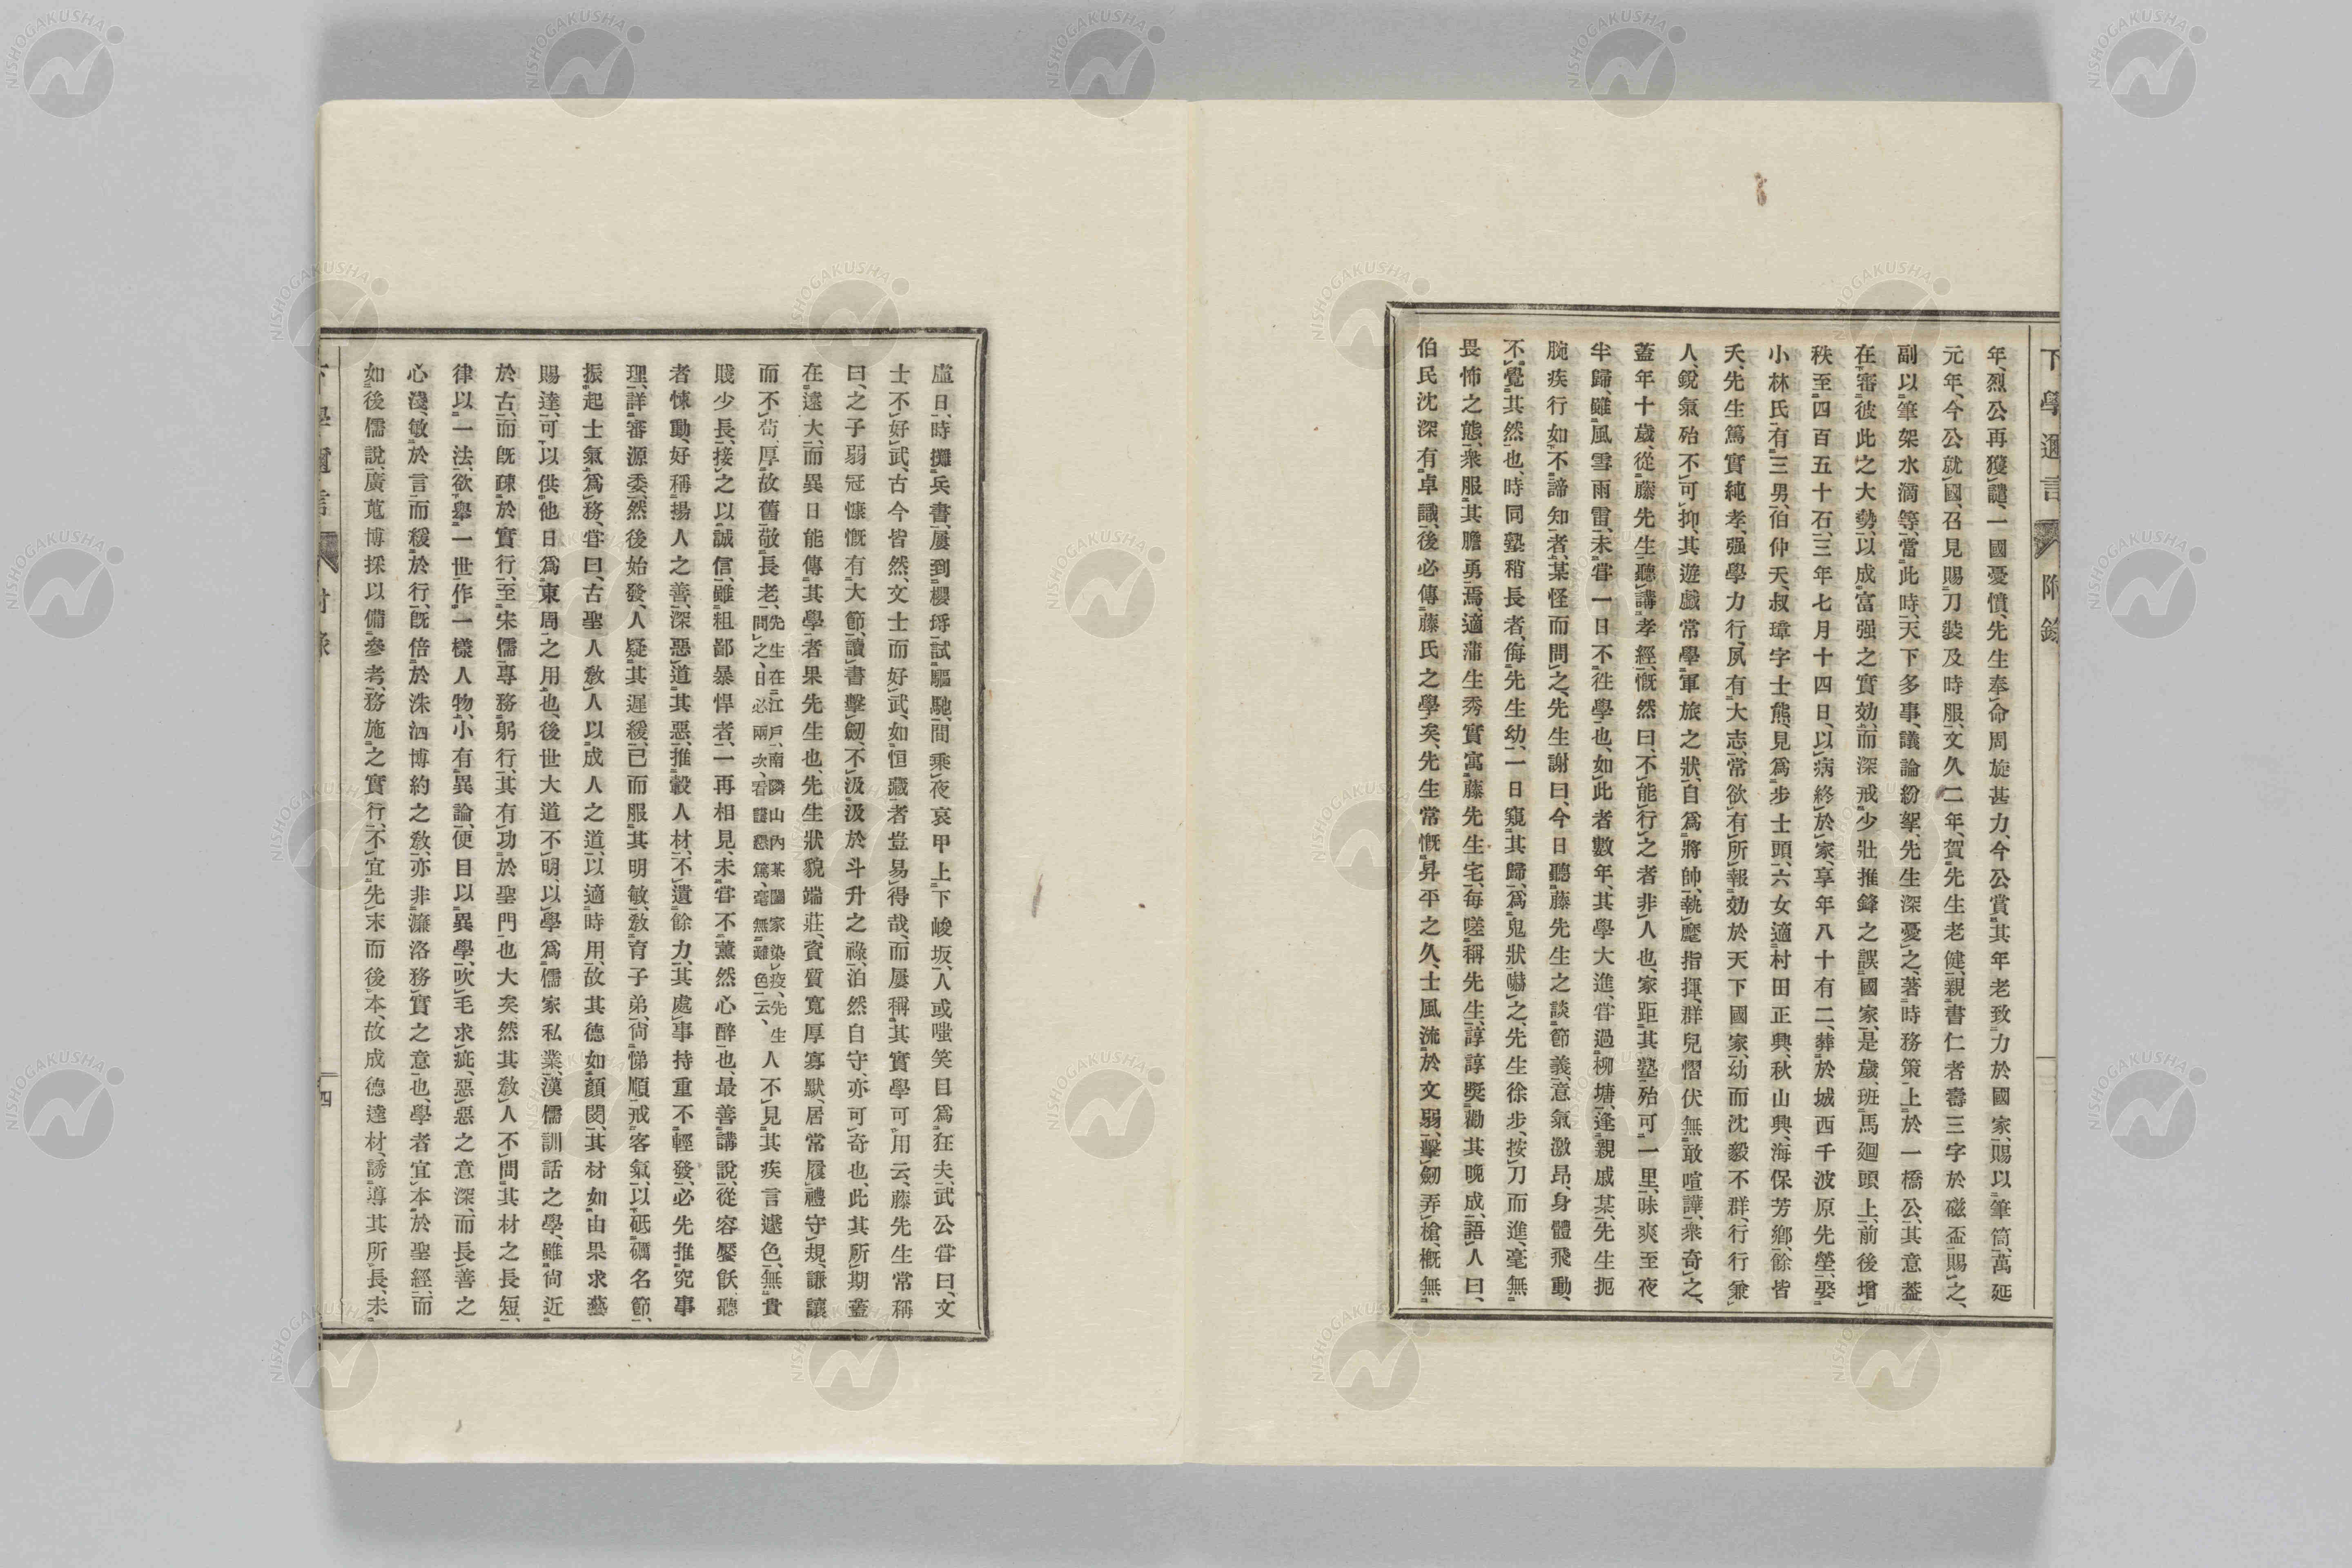 下學邇言 附錄
年、烈公再獲譴、一國憂憤、先生奉命周旋甚力、今公賞其年老致力於國家、賜以筆筒、萬延
元年、今公就國、召見賜刀裝及時服、文久二年、賀先生老健、親書仁者壽三字於磁盃賜之、
副以筆架水滴等、當此時、天下多事、議論紛挐、先生深憂之、著時務策上於一橋公、其意蓋
在審彼此之大勢、以成富强之實効、而深戒少壯推鋒之誤國家、是歲、班馬廻頭上、前後增
秩至四百五十石、三年七月十四日、以病終於家、享年八十有二、葬於城西千波原先塋、娶
小林氏、有三男、伯仲夭、叔璋字士熊、見爲步士頭、六女適村田正興、秋山興、海保芳鄉、餘皆
夭、先生篤實純孝、强學力行、夙有大志、常欲有所報効於天下國家、幼而沈毅不群、行行兼
人、銳氣殆不可抑、其遊戲常學軍旅之狀、自爲將帥、執麾指揮、群兒慴伏無敢喧譁、衆奇之、
蓋年十歲、從藤先生聽講孝經、慨然曰、不能行之者非人也、家距其塾殆可一里、昧爽至夜
半歸、雖風雪雨雷、未嘗一日不徃學也、如此者數年、其學大進、嘗過柳塘、逢親戚某、先生扼
腕疾行如不諦知者、某怪而問之、先生謝曰、今日聽藤先生之談節義、意氣激昂、身體飛動、
不覺其然也、時同塾稍長者、侮先生幼、一日窺其歸、爲鬼狀嚇之、先生徐步、按刀而進、毫無
畏怖之態、衆服其膽勇焉、適蒲生秀實寓藤先生宅、每嗟稱先生、諄諄奬勸其晩成、語人曰、
伯民沈深有卓識、後必傳藤氏之學矣、先生常慨昇平之久、士風流於文弱、擊劒弄槍、概無
虛日、時攤兵書、屢到櫻埓試驅馳、間乘夜哀甲上下峻坂、人或嗤笑目爲狂夫、武公嘗曰、文
士不好武、古今皆然、文士而好武、如恒藏者豈易得哉、而屢稱其實學可用云、藤先生常稱
曰、之子弱冠慷慨有大節、讀書擊劒、不汲汲於斗升之祿、泊然自守、亦可奇也、此其所期蓋
在遠大、而異日能傳其學者果先生也、先生狀貌端莊、資質寬厚寡默、居常履禮守規、謙讓
而不苟、厚故舊敬長老、先生在江戶、南隣山內某闔家染疫、先生問之、日必兩次、看護懇篤、毫無難色云、人不見其疾言遽色、無貴
賤少長、接之以誠信、雖粗鄙暴悍者、一再相見、未嘗不薰然心醉也、最善講說、從容饜飫、聽
者悚動、好稱揚人之善、深惡道其惡、推轂人材、不遺餘力、其處事持重不輕發、必先推究事
理、詳審源委、然後始發、人疑其遲緩、已而服其明敏、敎育子弟、尙悌順戒客氣、以砥礪名節、
振起士氣爲務、嘗曰、古聖人敎人以成人之道、以適時用、故其德如顏閔、其材如由果求藝
賜達、可以供他日爲東周之用也、後世大道不明、以學爲儒家私業、漢儒訓詁之學、雖尙近
於古、而旣疎於實行、至宋儒專務躬行、其有功於聖門也大矣、然其敎人不問其材之長短、
律以一法、欲擧一世作一樣人物、小有異論、便目以異學、吹毛求疵、惡惡之意深、而長善之
心淺、敏於言而緩於行、旣倍於洙泗博約之敎、亦非濂洛務實之意也、學者宜本於聖經、而
如後儒說、廣蒐博採以備參考、務施之實行、不宜先末而後本、故成德達材、誘導其所長、未
下學邇言 附錄 四